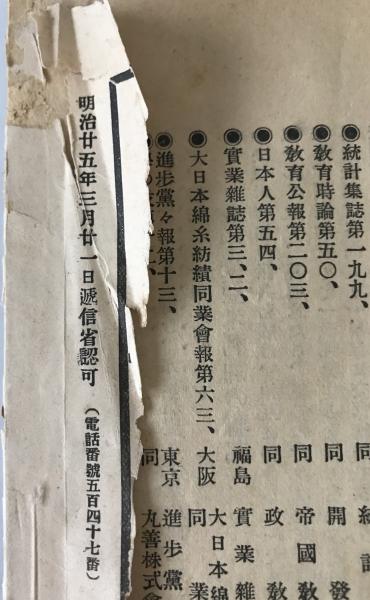 ◉統計集誌第一九九、同 統計
◉敎育時論第五〇、同 開發
◉敎育公報第二〇三、同 帝國敎
◉日本人第五四、同 政敎
◉實業雜誌第三、二、福島 實業雜
◉大日本綿糸紡績同業會報第六三、大阪 大日本綿 同業
◉進步黨々報第十三、東京 進步黨
同 丸善株式會
明治廿五年三月廿一日遞信省認可 (電話番號五百四十七番)